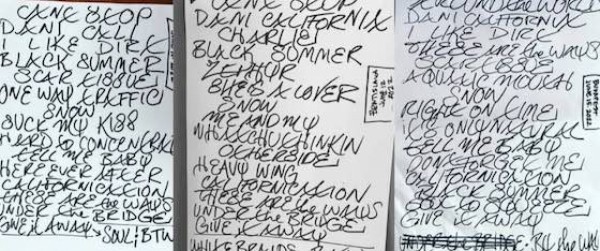 CAN'T STOP
DANI CALI
I LIKE DIRT
BLACK SUMMER
SCAR TISSUE
ONE WAY TRAFFIC
SNOW
SUCK MY KISS
HARD TO CONCENTRA
TELL ME BABY
HERE EVER AFTER
CALIFORNICATION
THESE ARE the WAYS
UNDER the BRIDGE
GIVE it AWAY → SOUL; BTW
CAN'T STOP
DANI CALIFORNIA
CHARLIE
BLACK SUMMER
ZEPHYR
SHE'S A LOVER
SNOW
ME AND MY
WHATCHUTHINKIN
OTHERSIDE
HEAVY WING
CALIFORNICATION
THESE ARE the WAYS
UNDER the BRIDGE
GIVE it AWAY
AROUND the WORLD
DANI CALIFORNIA
I LIKE DIRT
THESE ARE the WAYS
SCAR TISSUE
AQUATIC MOUTH
SNOW
RIGHT ON TIME
ITS ONLY NATURAL
TELL ME BABY
DONT FORGET ME
CALIFORNICATION
BLACK SUMMER
SOUL TO SQUEEZE
GIVE it AWAY
BUDAPEST